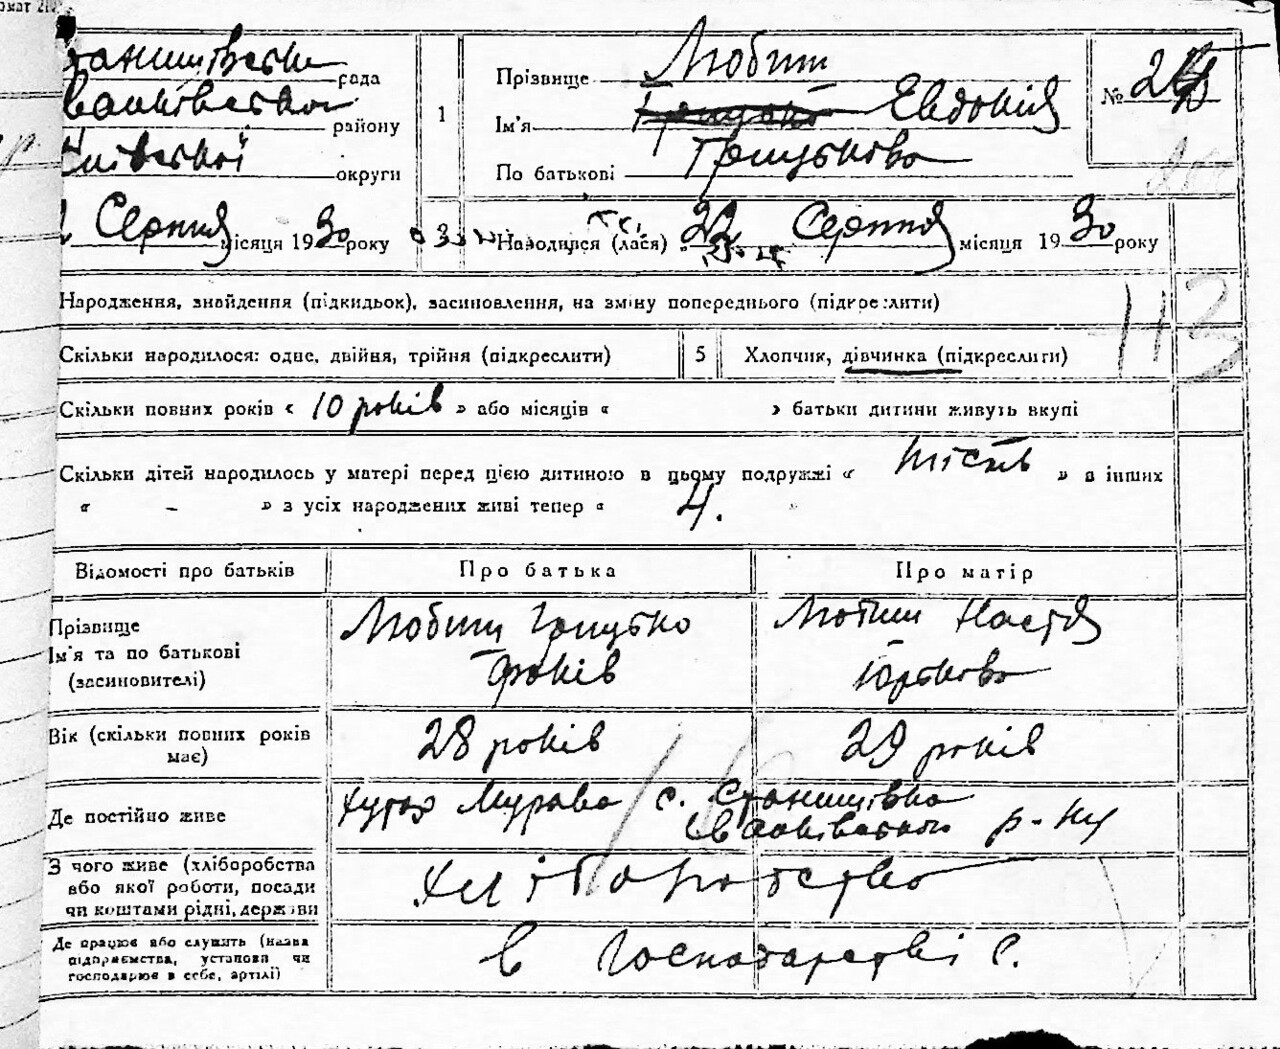 рада
району
округи
Серпня місяця 1930 року
1
Прізвище Любич
Ім'я Евдокія
По батькові Грицькова
№
3 Народився (лася) 22 Серпня місяця 1930 року
Народження, знайдення (підкидьок), засиновлення, на зміну попереднього (підкреслити)
113
Скільки народилося: одне, двійня, трійня (підкреслити)
5 Хлопчик, дівчинка (підкреслити)
Скільки повних років « 10 років » або місяців « » батьки дитини живуть вкупі
Скільки дітей народилось у матері перед цією дитиною в цьому подружжі « шість » в інших
« – » з усіх народжених живі тепер « 4. »
Відомості про батьків
Про батька
Про матір
Прізвище
Ім'я та по батькові
(засиновителі)
Любич Грицько
Любич Настя
Юркова
Вік (скільки повних років
має)
28 років
29 років
Де постійно живе
Хутор Мурава с. Станишівка
р-ну
З чого живе (хліборобства
або якої роботи, посади
чи коштами рідні, держави
Хліборобство
Де працює або служить (назва
підприємства, установи чи
господарює в себе, артілі)
в господарстві с.